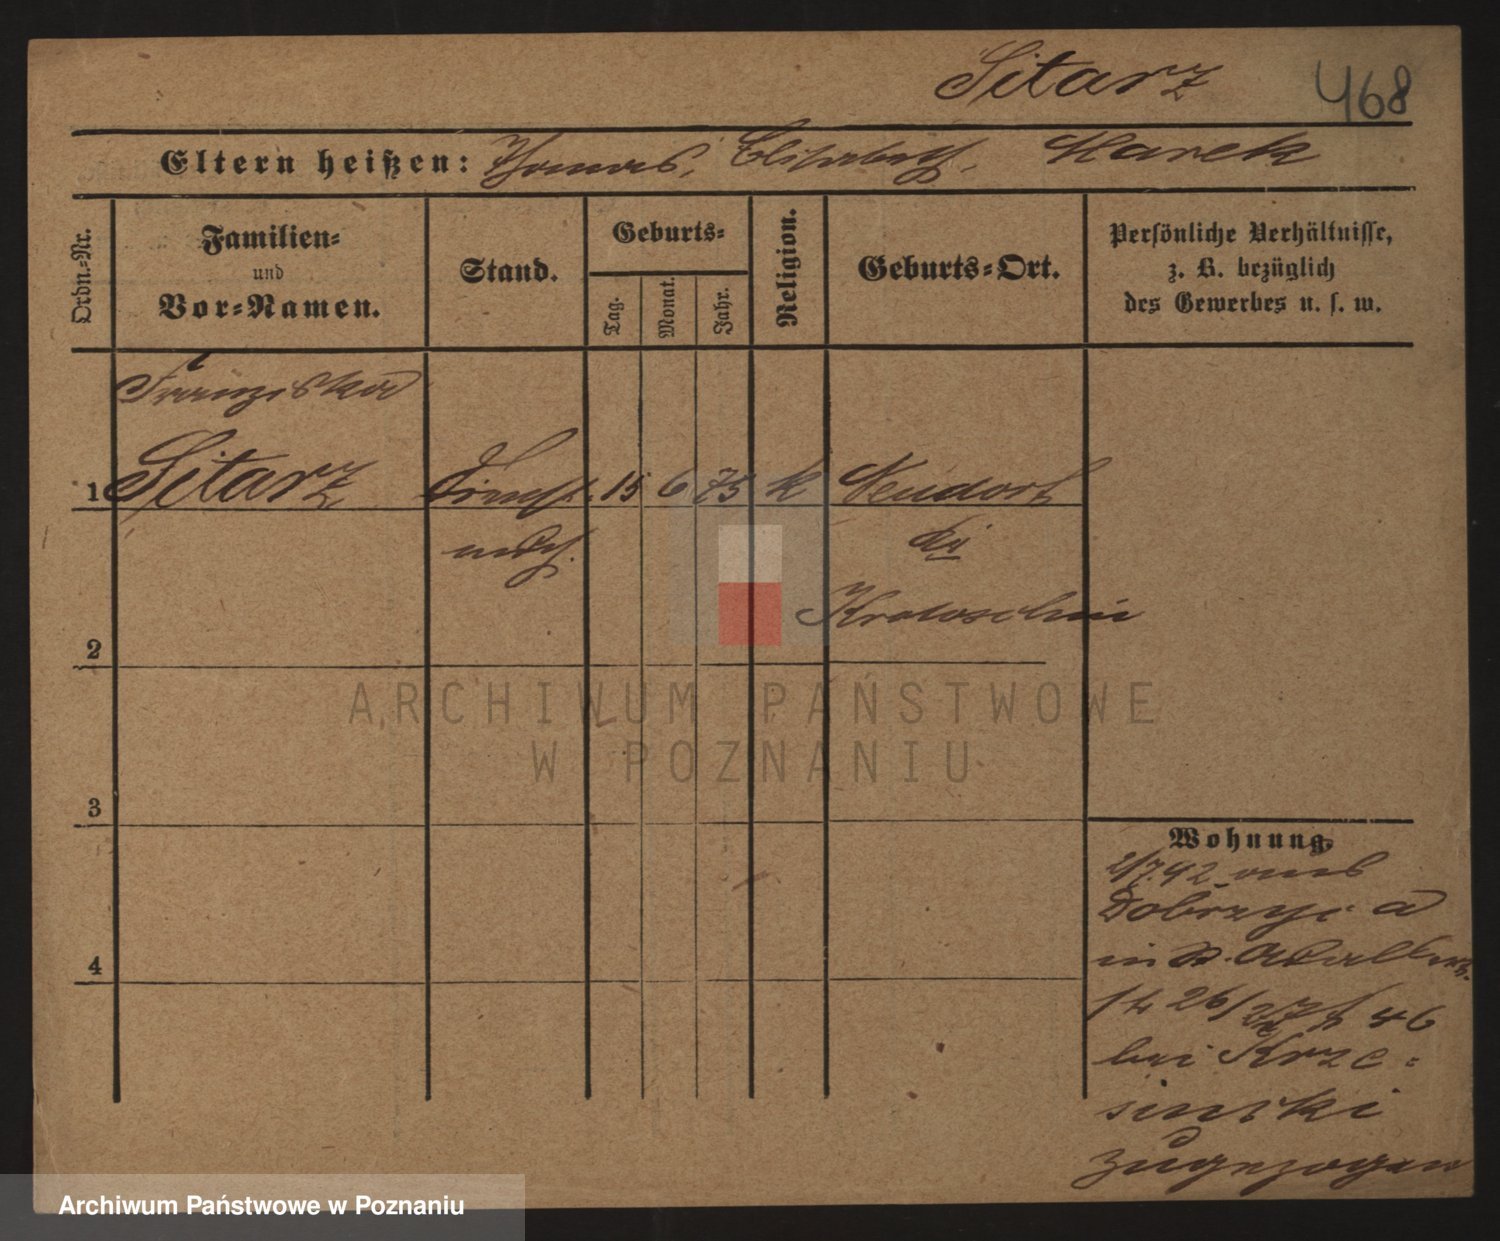 Sitarz 468
Eltern heißen: Thomas, Elisabeth, Marek
Ordn.-Nr.
Familien-
und
Vor-Namen.
Stand.
Geburts-
Tag.
Monat.
Jahr.
Religion.
Geburts-Ort.
Persönliche Verhältnisse,
z. B. bezüglich
des Gewerbes u. s. w.
Franziska
1 Sitarz Dienst- 15 6 75 k Neudorf
mdch.
Kr
Krotoschin
2
3
4
Wohnung.
2/7.92 aus
Dobrzyca
in P. Adalbert
14 26/27
bei Krze-
sinski
zugezogen
ARCHIWUM PAŃSTWOWE
W POZNANIU
Archiwum Państwowe w Poznaniu